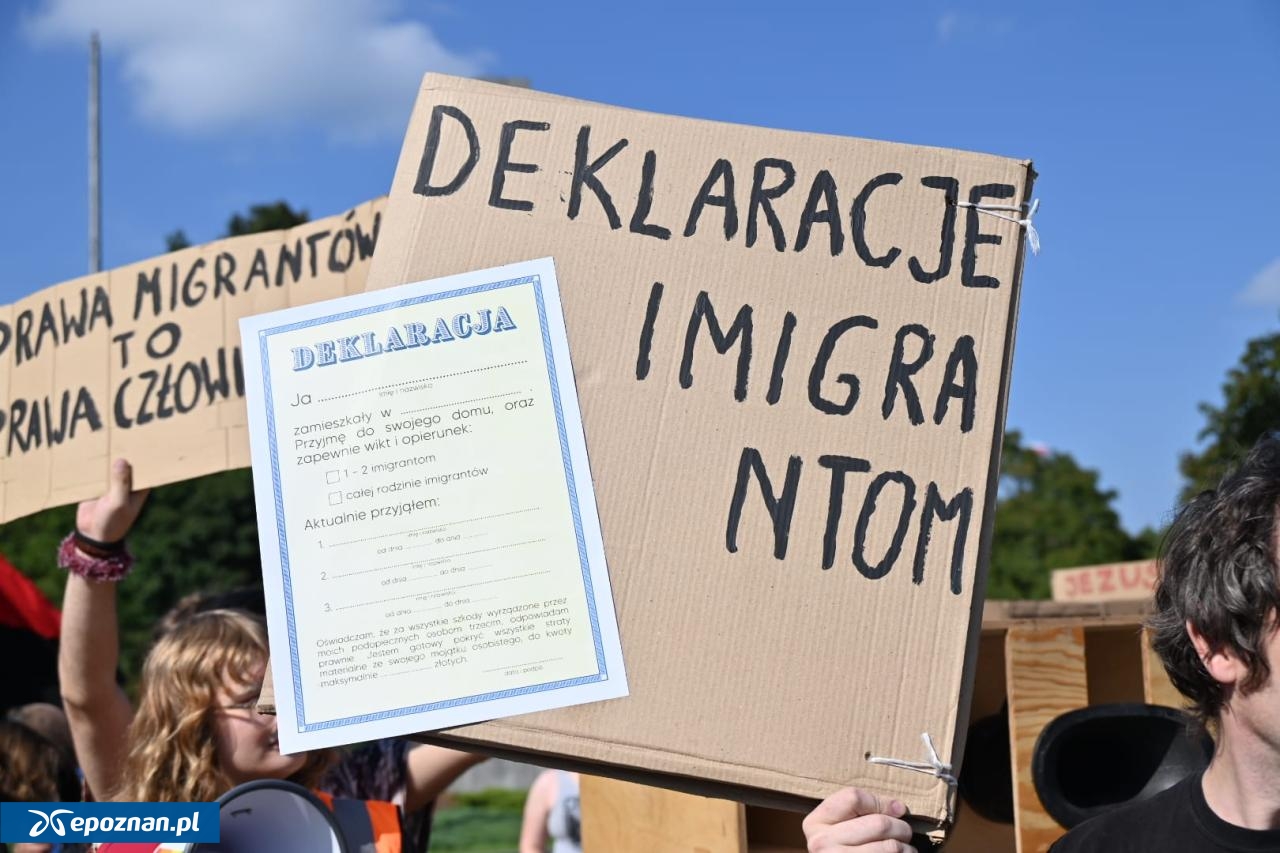 DEKLARACJE
IMIGRA
NTOM
PRAWA MIGRANTÓW
TO
PRAWA CZŁOWI
DEKLARACJA
Ja ..............................
imię i nazwisko
zamieszkały w .............................. .
Przyjmę do swojego domu, oraz
zapewnie wikt i opierunek:
1 - 2 imigrantom
całej rodzinie imigrantów
Aktualnie przyjąłem:
1. ..............................
imię i nazwisko
od dnia ............ do dnia ............
2. ..............................
imię i nazwisko
od dnia ............ do dnia ............
3. ..............................
imię i nazwisko
od dnia ............ do dnia ............
Oświadczam, że za wszystkie szkody wyrządzone przez
moich podopiecznych osobom trzecim, odpowiadam
prawnie. Jestem gotowy pokryć wszystkie straty
materialne ze swojego majątku osobistego, do kwoty
maksymalnie .................. złotych.
data i podpis
JEZUS
epoznan.pl